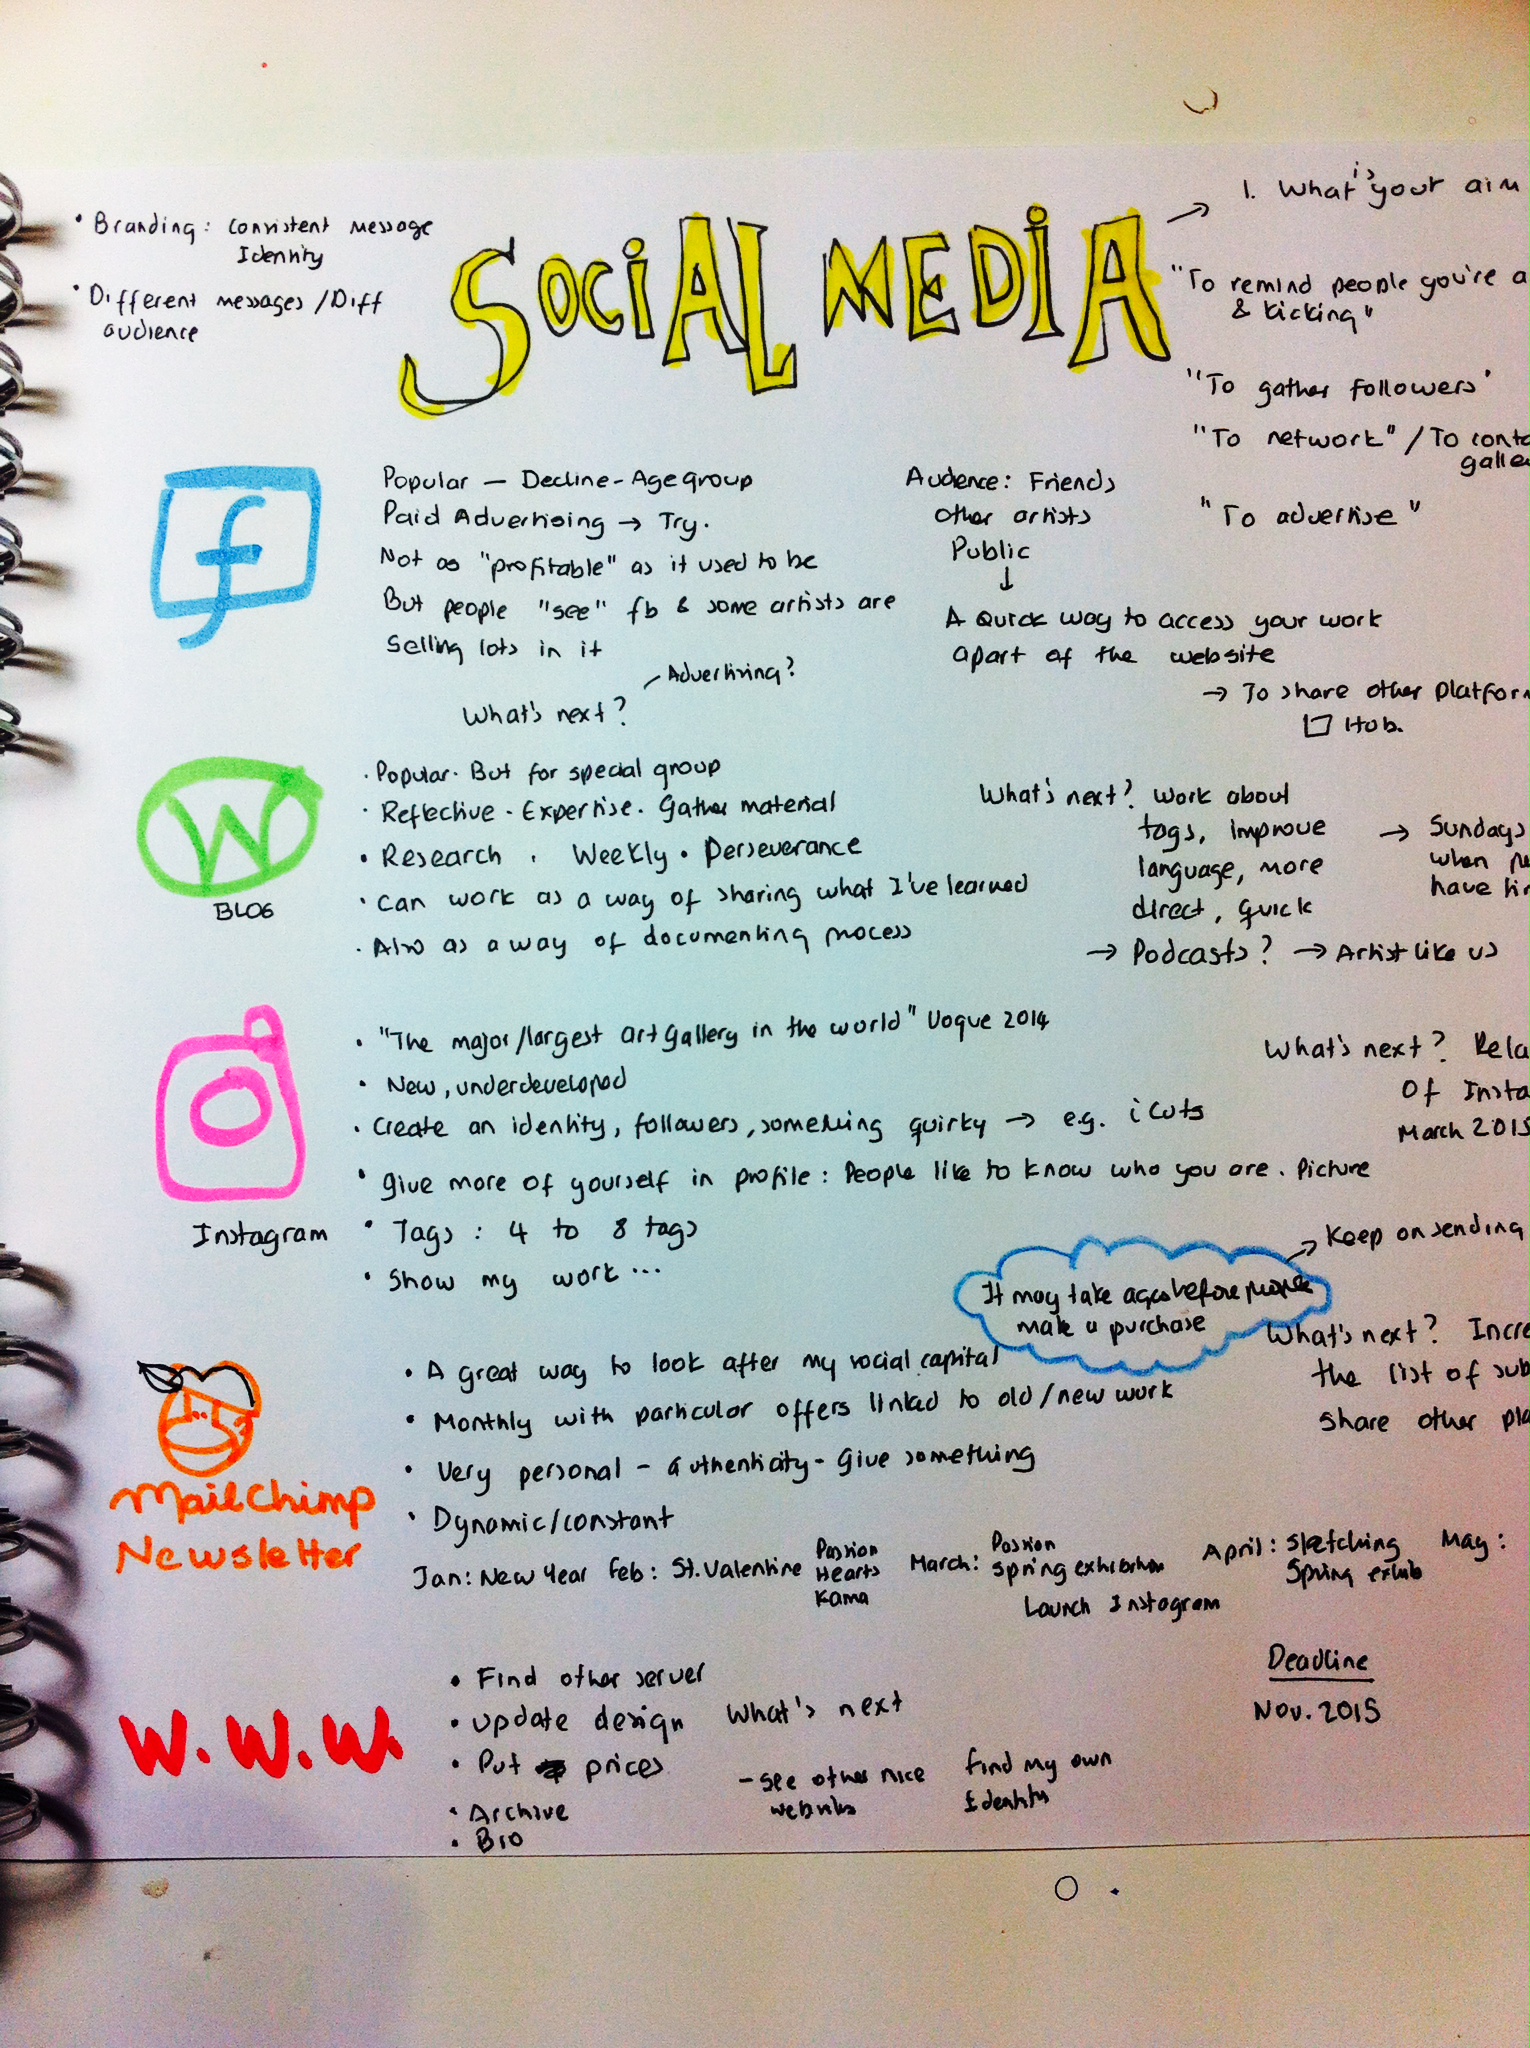 • Branding: Consistent message
Identity
• Different messages / Diff
audience
SOCIAL MEDIA
→ 1. What is your aim
"To remind people you're a
& kicking"
"To gather followers'
"To network" / To conta
galle
"To advertise"
f
Popular — Decline - Age group
Paid Advertising → Try.
Not as "profitable" as it used to be
But people "see" fb & some artists are
selling lots in it
Advertising?
What's next?
Audience: Friends
other artists
Public
↓
A quick way to access your work
apart of the website
→ To share other platform
Hub.
W
BLOG
· Popular. But for special group
· Reflective - Expertise. Gather material
• Research . Weekly • Perseverance
• Can work as a way of sharing what I've learned
• Also as a way of documenting process
What's next? Work about
tags, improve
language, more
direct, quick
→ Sundays
when
have
→ Podcasts? → Artist like us
Instagram
• "The major/largest art gallery in the world" Vogue 2014
• New, underdeveloped
• Create an identity, followers, something quirky → e.g. i cuts
• Give more of yourself in profile: People like to know who you are. Picture
• Tags: 4 to 8 tags
• Show my work ...
What's next? Rela
Of Insta
March 2015
It may take ages before people
make a purchase
→ Keep on sending
MailChimp
Newsletter
• A great way to look after my social capital
• Monthly with particular offers linked to old/new work
• Very personal - authenticity - Give something
• Dynamic/constant
What's next? Incre
the list of sub
share other pla
Jan: New Year Feb: St. Valentine Passion
Hearts
Kama
March: Passion
Spring exhibition
Launch Instagram
April: Sketching
Spring exhib
May:
W.W.W.
• Find other server
• Update design
• Put prices
• Archive
• Bio
What's next
- see other nice
websites
find my own
Identity
Deadline
Nov. 2015